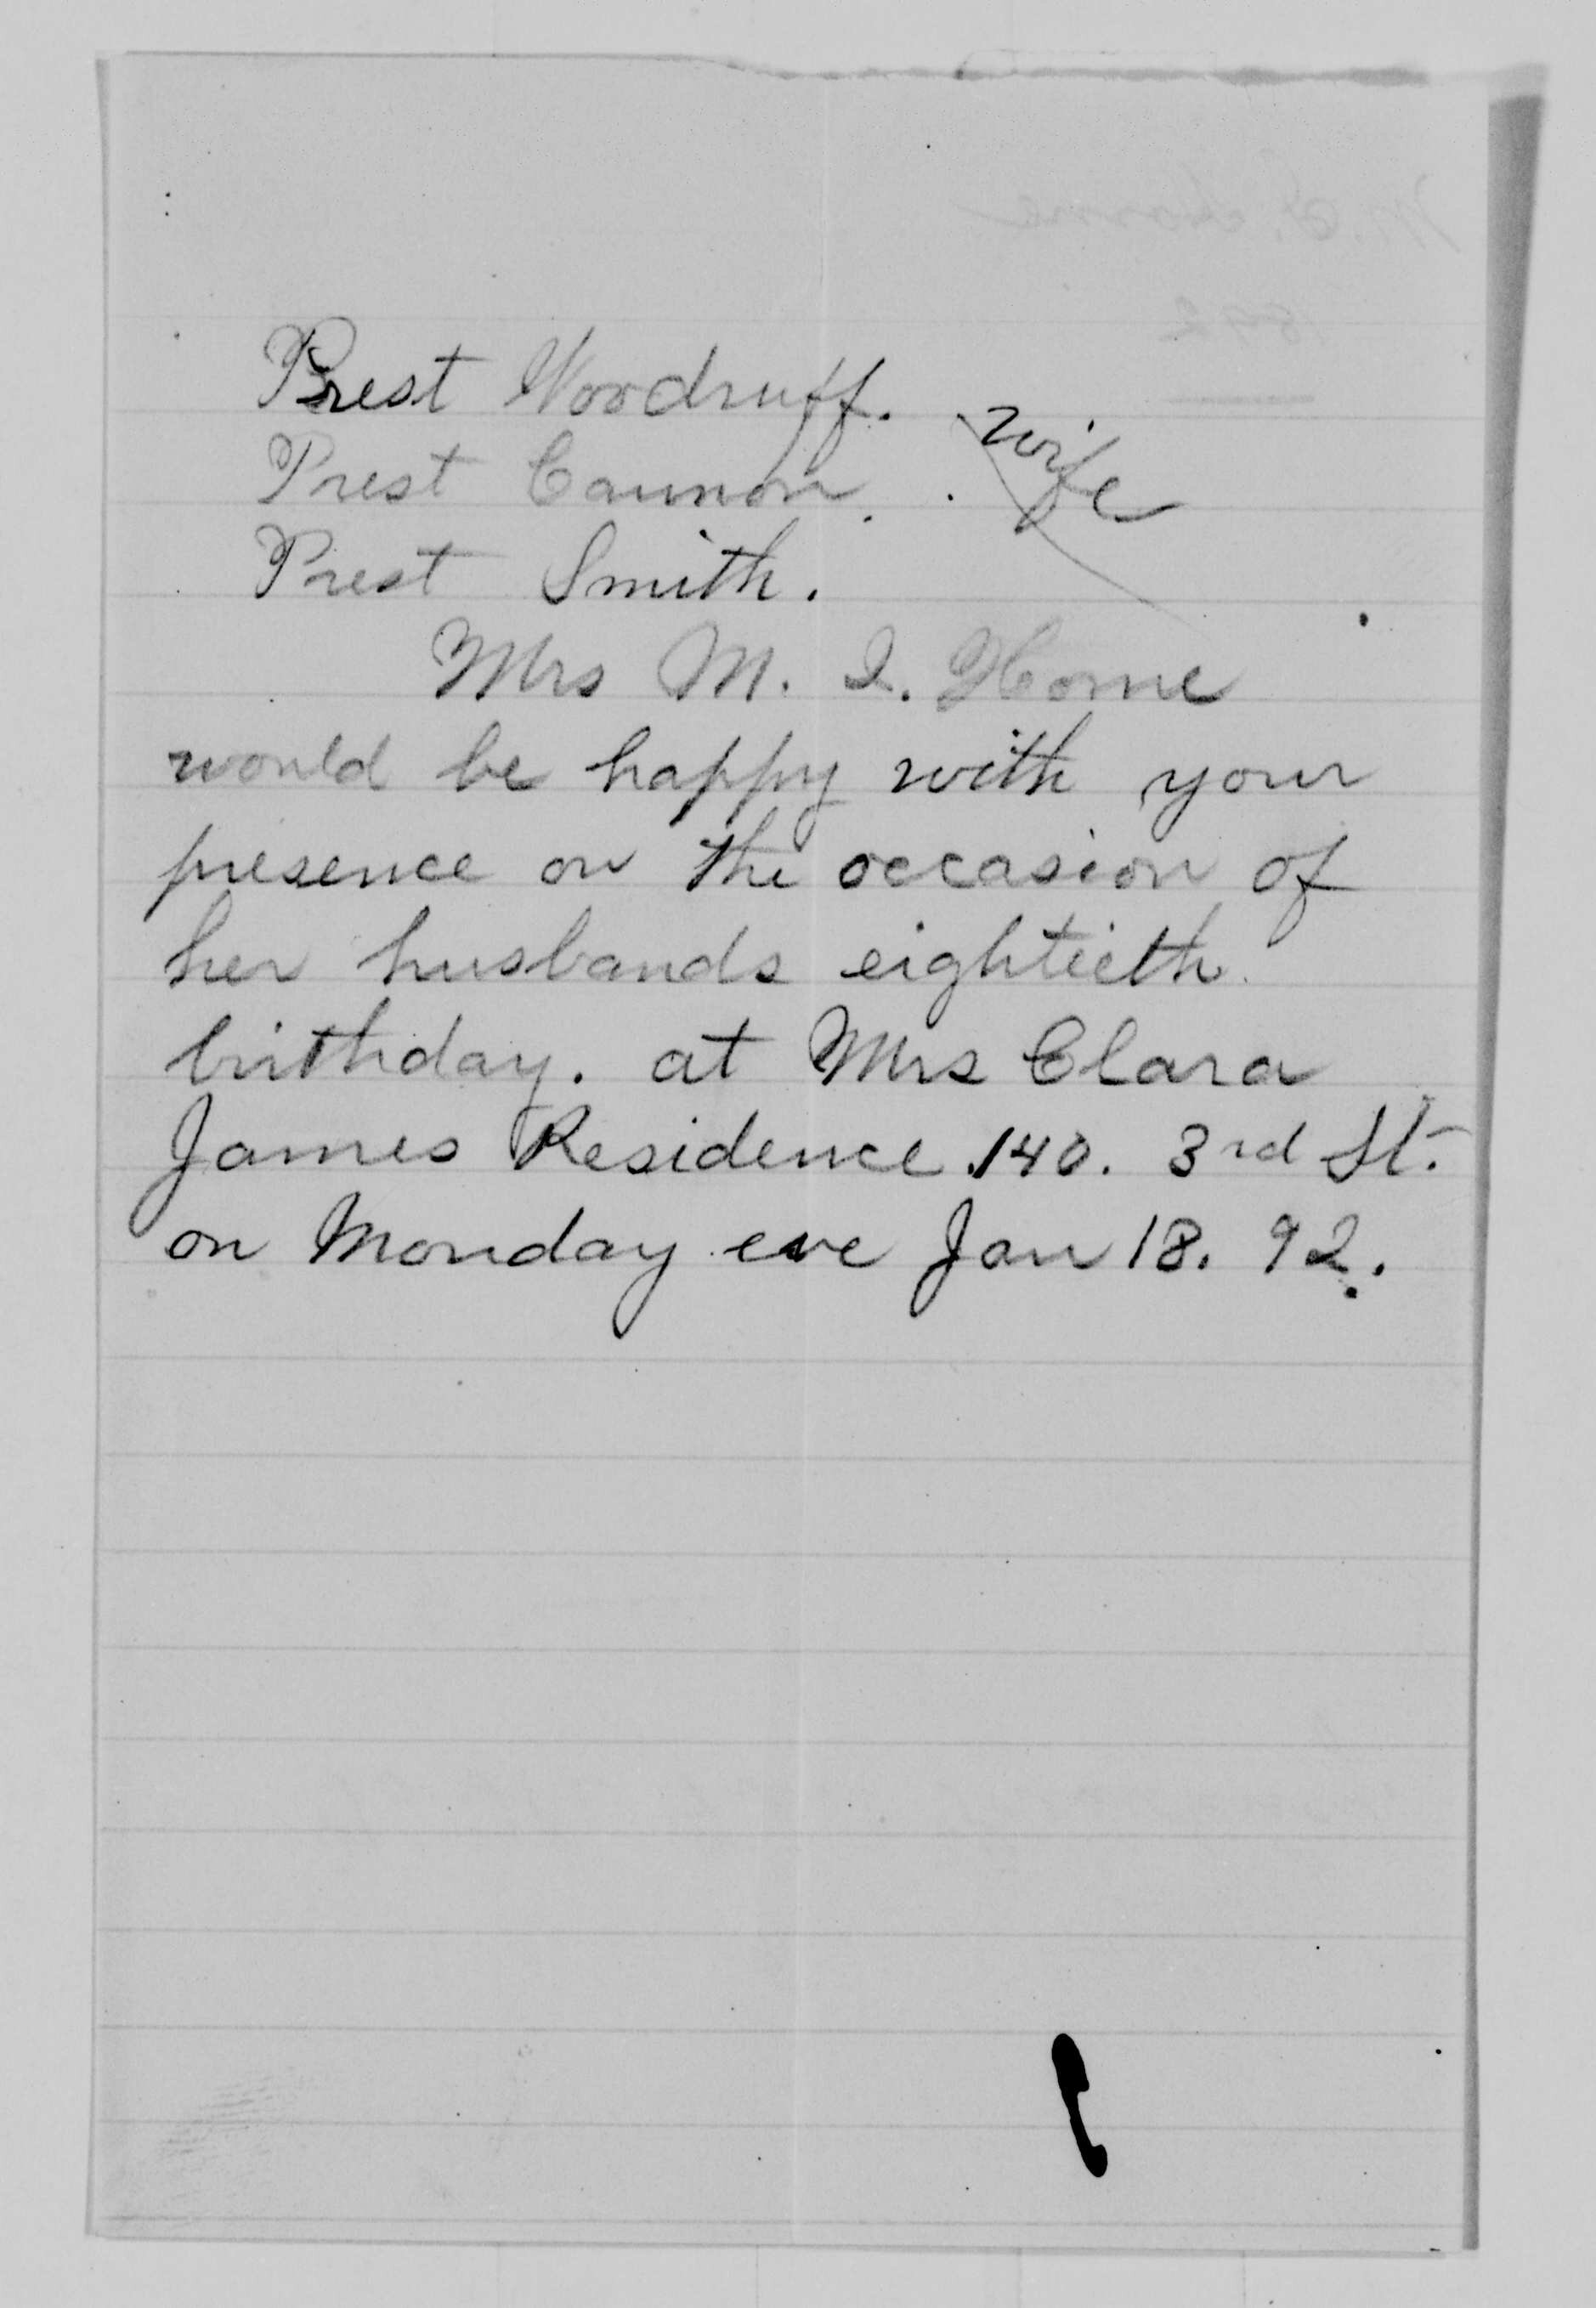 Prest Woodruff.
wife
Prest Cannon.
Prest Smith.
Mrs M. I. Horne
would be happy with your
presence on the occasion of
her husbands eightieth
birthday. at Mrs Clara
James Residence 140. 3rd St.
on Monday eve Jan 18. 92.